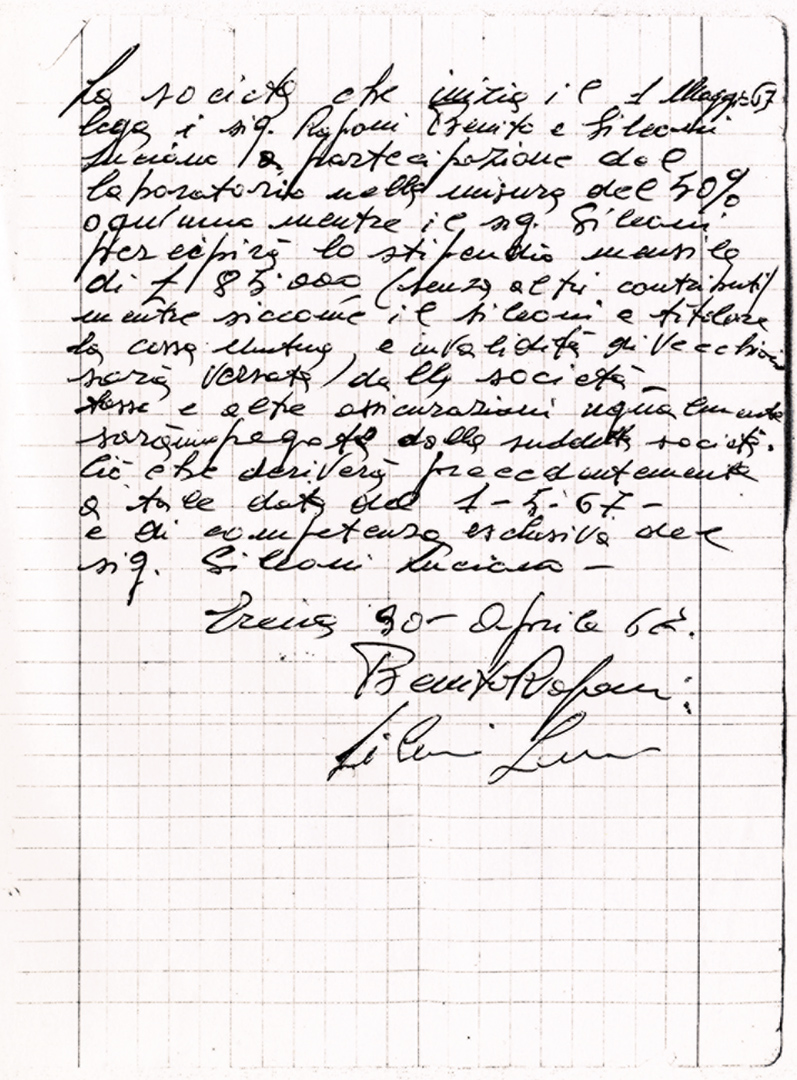 La società che inizia il 1 Maggio 67
lega i sig. Raponi Benito e Sileoni
Luciano a partecipazione del
laboratorio nella misura del 50%
ogni'uno mentre il sig. Sileoni
percepirà lo stipendio mensile
di £ 85.000 (senza altri contributi)
mentre siccome il Sileoni e titolare
la cassa mutua, e invalidità di vecchiaia
sarà versata dalla società
tasse e altre assicurazioni ugualmente
pagate dalla suddetta società.
Ciò che deriverà precedentemente
a tale data del 1-5-67-
e di competenza esclusiva del
sig. Sileoni Luciano -
Treia 30- Aprile 67.
Benito Raponi
Sileoni